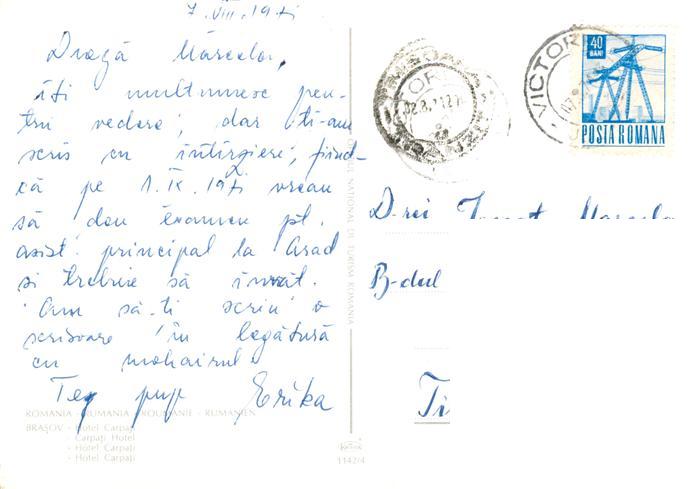 7.VIII.1971
Dragă Marcelor,
îți mulțumesc pen-
tru vedere, dar ți-am
scris cu întîrziere, fiind-
că pe 1.IX.1971 vreau
să dau examen pt.
asist. principal la Arad
și trebuie să învăț.
Am să-ți scriu o
scrisoare în legătură
cu mohairul.
Te pup Erika
ROMANIA - RUMANIA - ROUMANIE - RUMANIEN
BRAȘOV - Hotel Carpați
- Carpați Hotel
- Hotel Carpați
- Hotel Carpați
NATIONAL DE TURISM ROMANIA
1142/4
VICTOR
40
BANI
POSTA ROMANA
D-rei
B-dul
Ti